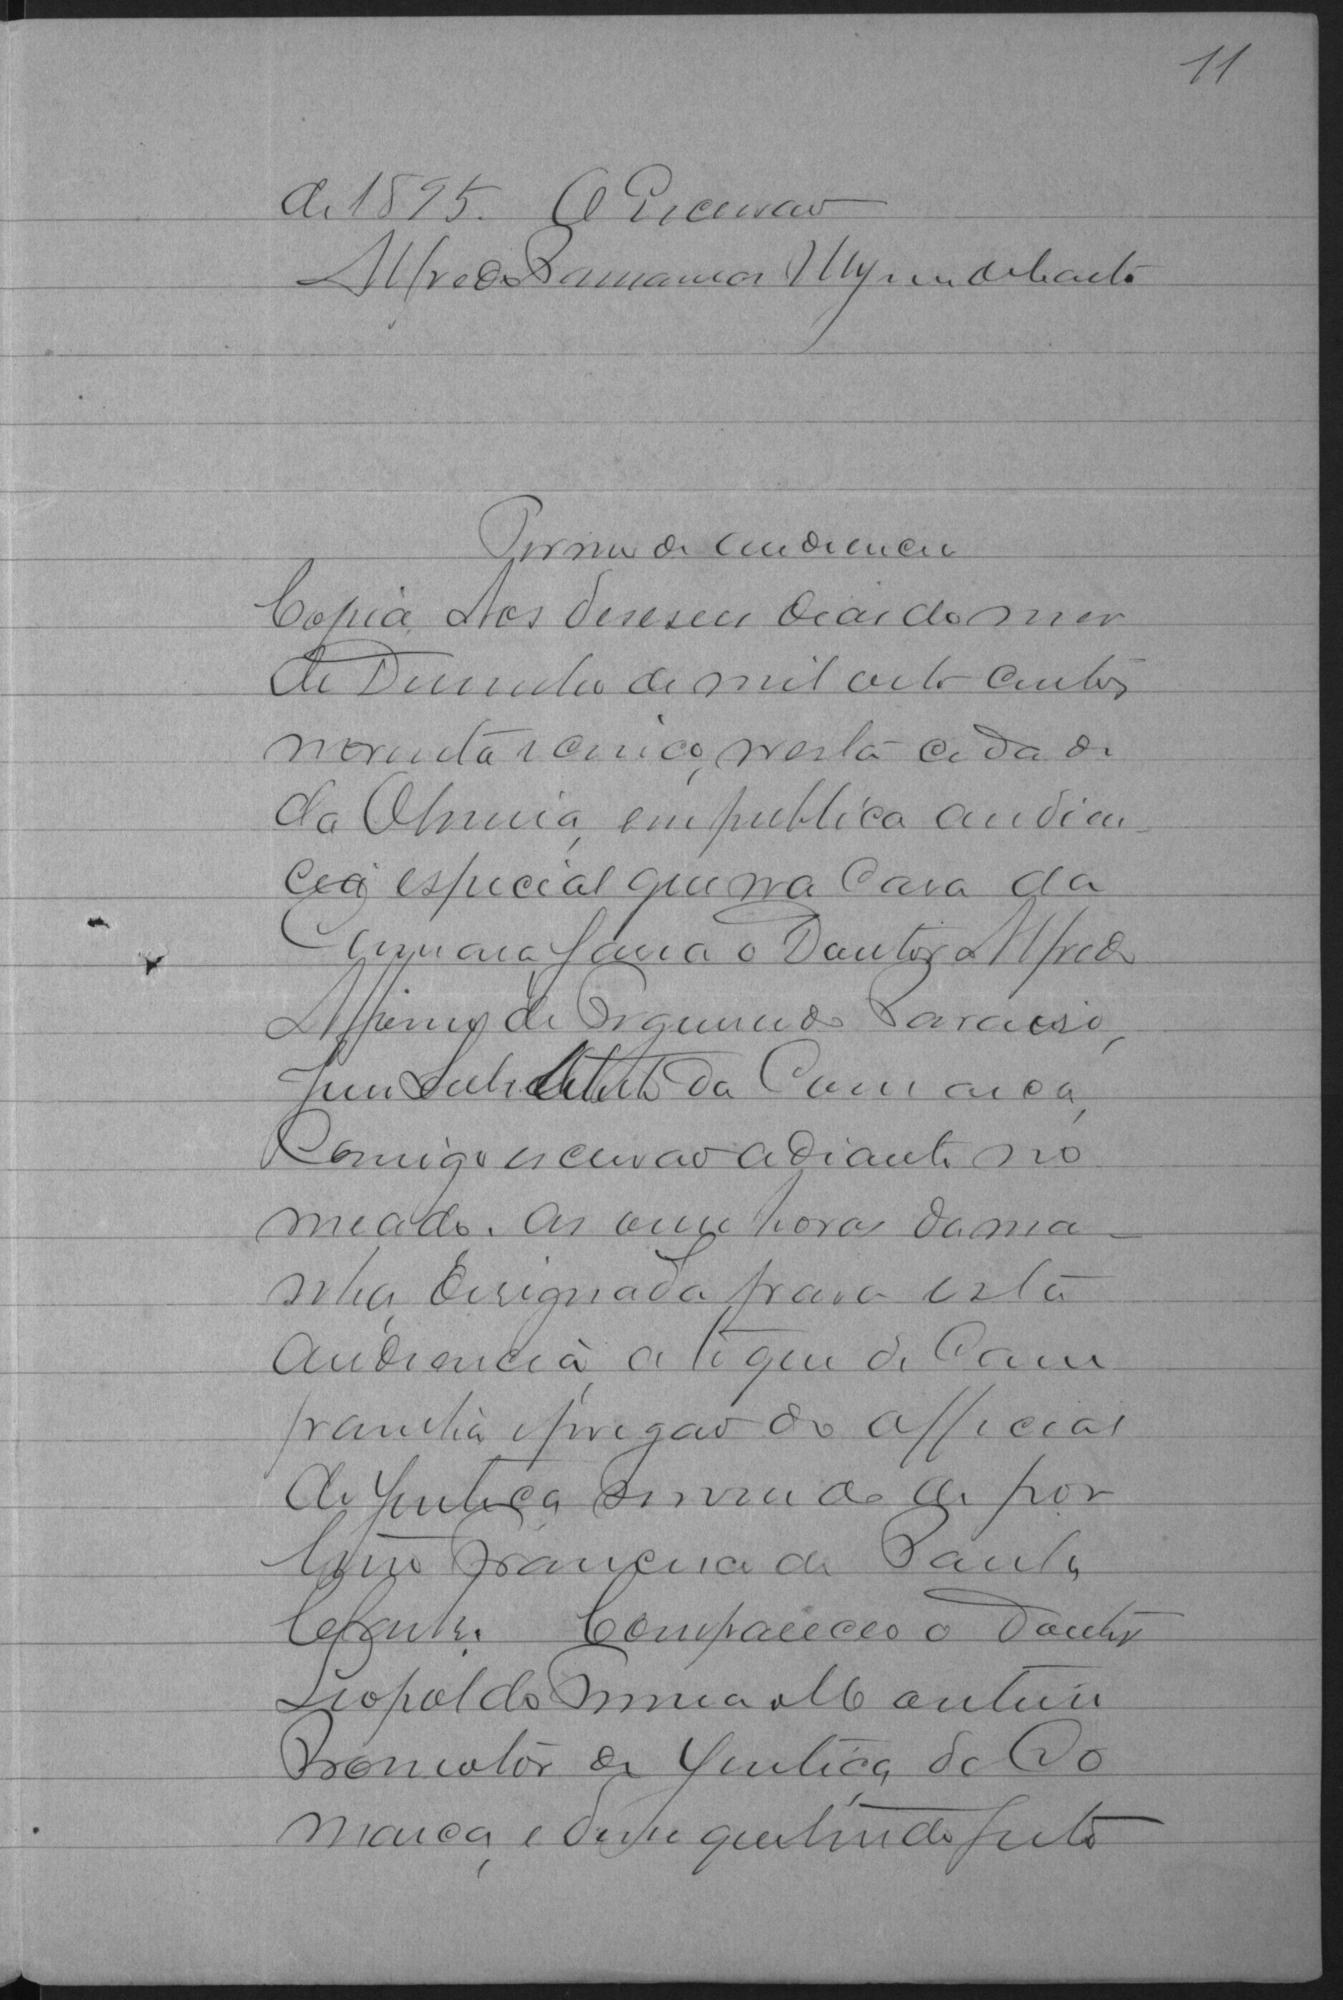 11
de 1895. O Escrivao
Alfredo
Termo de audiencia
Copia. Aos deseseis dias do mes
de Dezembro de mil oito centos
noventa e cinco, nesta cidade
da, em publica audien-
cia especial que na Casa da
Camara fasia o Doutor Alfredo
de Paraiso,
Juis Substituto da Comarca,
Comigo escrivao adiante no
meado. As onse horas da ma-
nha, designada para esta
audiencia, a toque de Cam
painha e pregao do official
de Justiça servindo de por
teiro Francisco de Paula
Compareceo o Doutor
Leopoldo
Promotor de Justiça da Co
marca, e disse que tendo feito